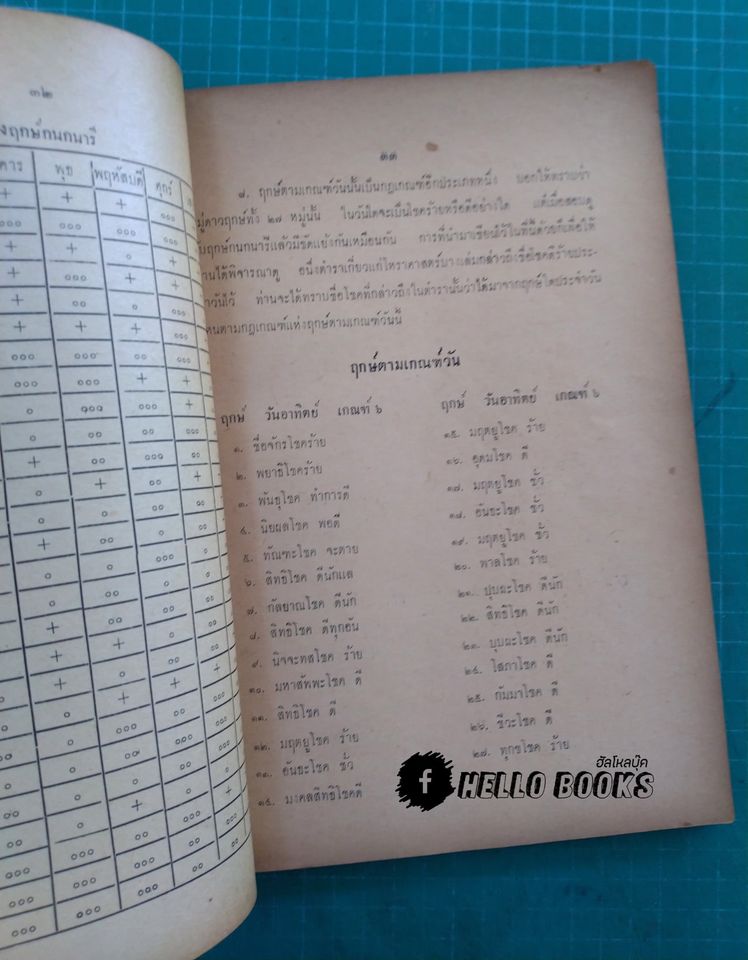 ๓๒
งฤกษ์กนกนารี
คาร พุธ พฤหัสบดี ศุกร์
๓๓
๘. ฤกษ์ตามเกณฑ์วันนั้นเป็นกฎเกณฑ์อีกประเภทหนึ่ง บอกให้ทราบว่า
หมู่ดาวฤกษ์ทั้ง ๒๗ หมู่นั้น ในวันใดจะเป็นโชคร้ายหรือดีอย่างใด แต่เมื่อสอบดู
กับฤกษ์กนกนารีแล้วมีขัดแย้งกันเหมือนกัน การที่นำมาเขียนไว้ในที่นี้ด้วยก็เพื่อให้
ท่านได้พิจารณาดู อนึ่งตำราเกี่ยวแก่โหราศาสตร์บางเล่มกล่าวถึงชื่อโชคดีร้ายประ-
จำวันไว้ ท่านจะได้ทราบชื่อโชคที่กล่าวถึงในตำรานั้นว่าได้มาจากฤกษ์ใดประจำวัน
ไหนตามกฎเกณฑ์แห่งฤกษ์ตามเกณฑ์วันนี้
ฤกษ์ตามเกณฑ์วัน
ฤกษ์ วันอาทิตย์ เกณฑ์ ๖
๑. ชื่อจักรโชคร้าย
๒. พยาธิโชคร้าย
๓. พันธุโชค ทำการดี
๔. นิยผลโชค พอดี
๕. ทัณฑะโชค จะตาย
๖. สิทธิโชค ดีนักแล
๗. กัลยาณโชค ดีนัก
๘. สิทธิโชค ดีทุกอัน
๙. นิจจะทสโชค ร้าย
๑๐. มหาสัพพะโชค ดี
๑๑. สิทธิโชค ดี
๑๒. มฤตยูโชค ร้าย
๑๓. อันธะโชค ชั่ว
๑๔. มงคลสิทธิโชคดี
ฤกษ์ วันอาทิตย์ เกณฑ์ ๖
๑๕. มฤตยูโชค ร้าย
๑๖. อุดมโชค ดี
๑๗. มฤตยูโชค ชั่ว
๑๘. อันธะโชค ชั่ว
๑๙. มฤตยูโชค ชั่ว
๒๐. พาลโชค ร้าย
๒๑. ปุบผะโชค ดีนัก
๒๒. สิทธิโชค ดีนัก
๒๓. บุบผะโชค ดีนัก
๒๔. โสภาโชค ดี
๒๕. กัมมาโชค ดี
๒๖. ชีวะโชค ดี
๒๗. ทุกขโชค ร้าย
ฮัลโหลบุ๊ค
f HELLO BOOKS